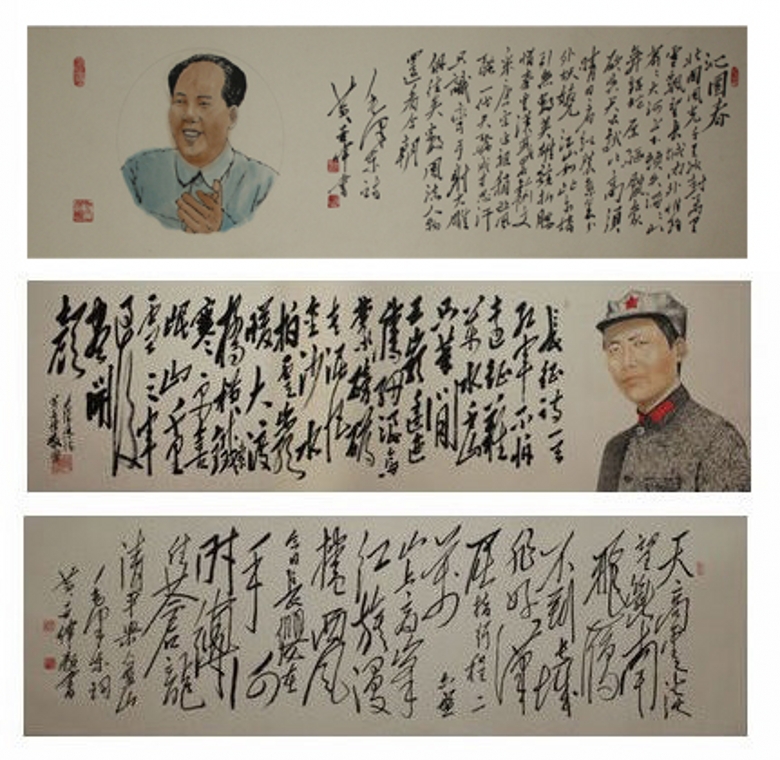 沁园春
北国风光千里冰封万里
雪飘望长城内外惟馀
莽莽大河上下顿失滔滔山
舞银蛇原驰蜡象
欲与天公试比高须
晴日看红装素裹分
外妖娆江山如此多娇
引无数英雄竞折腰
惜秦皇汉武略输文
采唐宗宋祖稍逊风
骚一代天骄成吉思汗
只识弯弓射大雕
俱往矣数风流人物
还看今朝
毛泽东词
黄书
长征诗一首
红军不怕
远征难
万水千山
只等闲
五岭逶迤
腾细浪乌
蒙磅礴
走泥丸
金沙水
拍云崖
暖大渡
桥横铁索
寒更喜
岷山千里
雪三军
过后
尽开
颜
天高云淡
望断南
飞雁
不到长城
非好汉
屈指行程二
万六盘
山上高峰
红旗漫
卷西风
今日长缨在
手何
时缚
住苍龙
清平乐六盘山
毛泽东词
黄书